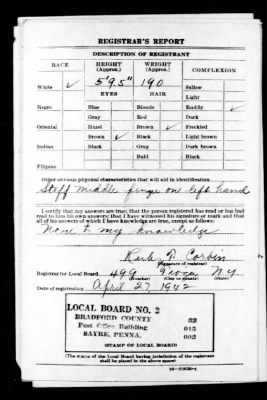 REGISTRAR'S REPORT
DESCRIPTION OF REGISTRANT
RACE HEIGHT (Approx.) WEIGHT (Approx.) COMPLEXION
White ✓ 5'9.5" 190 Sallow
EYES HAIR Light
Negro Blue Blonde Ruddy ✓
Gray Red Dark
Oriental Hazel Brown ✓ Freckled
Brown ✓ Black Light brown
Indian Black Gray Dark brown
Bald Black
Filipino
Other obvious physical characteristics that will aid in identification
Stiff middle finger on left hand
I certify that my answers are true; that the person registered has read or has had
read to him his own answers; that I have witnessed his signature or mark and that
all of his answers of which I have knowledge are true, except as follows:
None to my knowledge
Corbin
(Signature of registrar)
Registrar for Local Board 499 Tioga N.Y.
(Number) (City or county) (State)
Date of registration April 27, 1942
LOCAL BOARD NO. 2
BRADFORD COUNTY 32
Post Office Building 015
SAYRE, PENNA. 002
(STAMP OF LOCAL BOARD)
(The stamp of the Local Board having jurisdiction of the registrant
shall be placed in the above space)